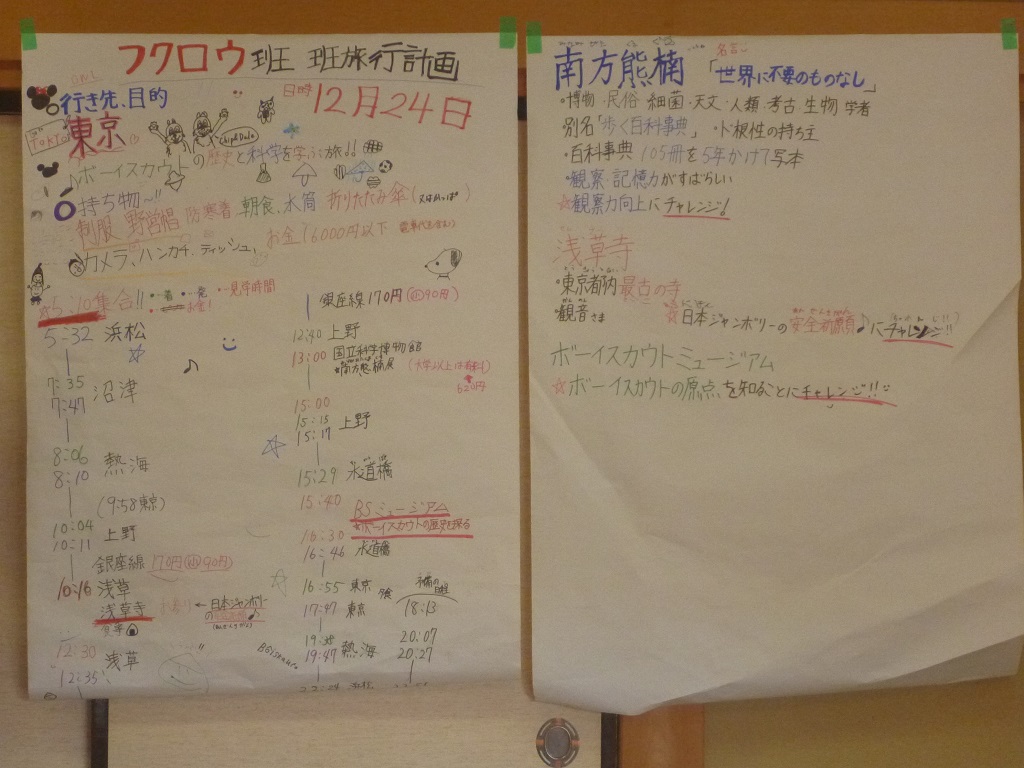 フクロウ班 班旅行計画
行き先、目的
日時 12月24日
東京
ChipnDale
ボーイスカウトの歴史と科学を学ぶ旅!!
持ち物〜!!
制服 野営帳 防寒着 朝食、水筒 折りたたみ傘(又はかっぱ)
カメラ、ハンカチ、ティッシュ、お金(6000円以下 電車代含まない)
☆5:10集合!! ・着 ・発 ・見学時間
・お金!
5:32 浜松
7:35
7:47 沼津
8:06
8:10 熱海
(9:58東京)
10:04
10:11 上野
銀座線 170円(小90円)
10:16 浅草
浅草寺 お参り ← 日本ジャンボリー
12:30 浅草
12:35
銀座線170円(小90円)
12:40 上野
13:00 国立科学博物館
南方熊楠展 (大学以上は有料)
620円
15:00
15:15 上野
15:17
15:29 水道橋
15:40 BSミュージアム
☆ボーイスカウトの歴史を探る
16:30
16:46 水道橋
16:55 東京 夕食
17:47 東京 18:13
19:38 20:07
19:47 熱海 20:27
南方熊楠 名言〜「世界に不要のものなし」
・博物・民俗・細菌・天文・人類・考古・生物 学者
別名「歩く百科事典」・ド根性の持ち主
・百科事典 105冊を5年かけて写本
・観察、記憶力がすばらしい
☆観察力向上にチャレンジ!
浅草寺
・東京都内最古の寺
・観音さま ☆日本ジャンボリーの安全祈願♪にチャレンジ!!
ボーイスカウトミュージアム
☆ボーイスカウトの原点を知ることにチャレンジ!!